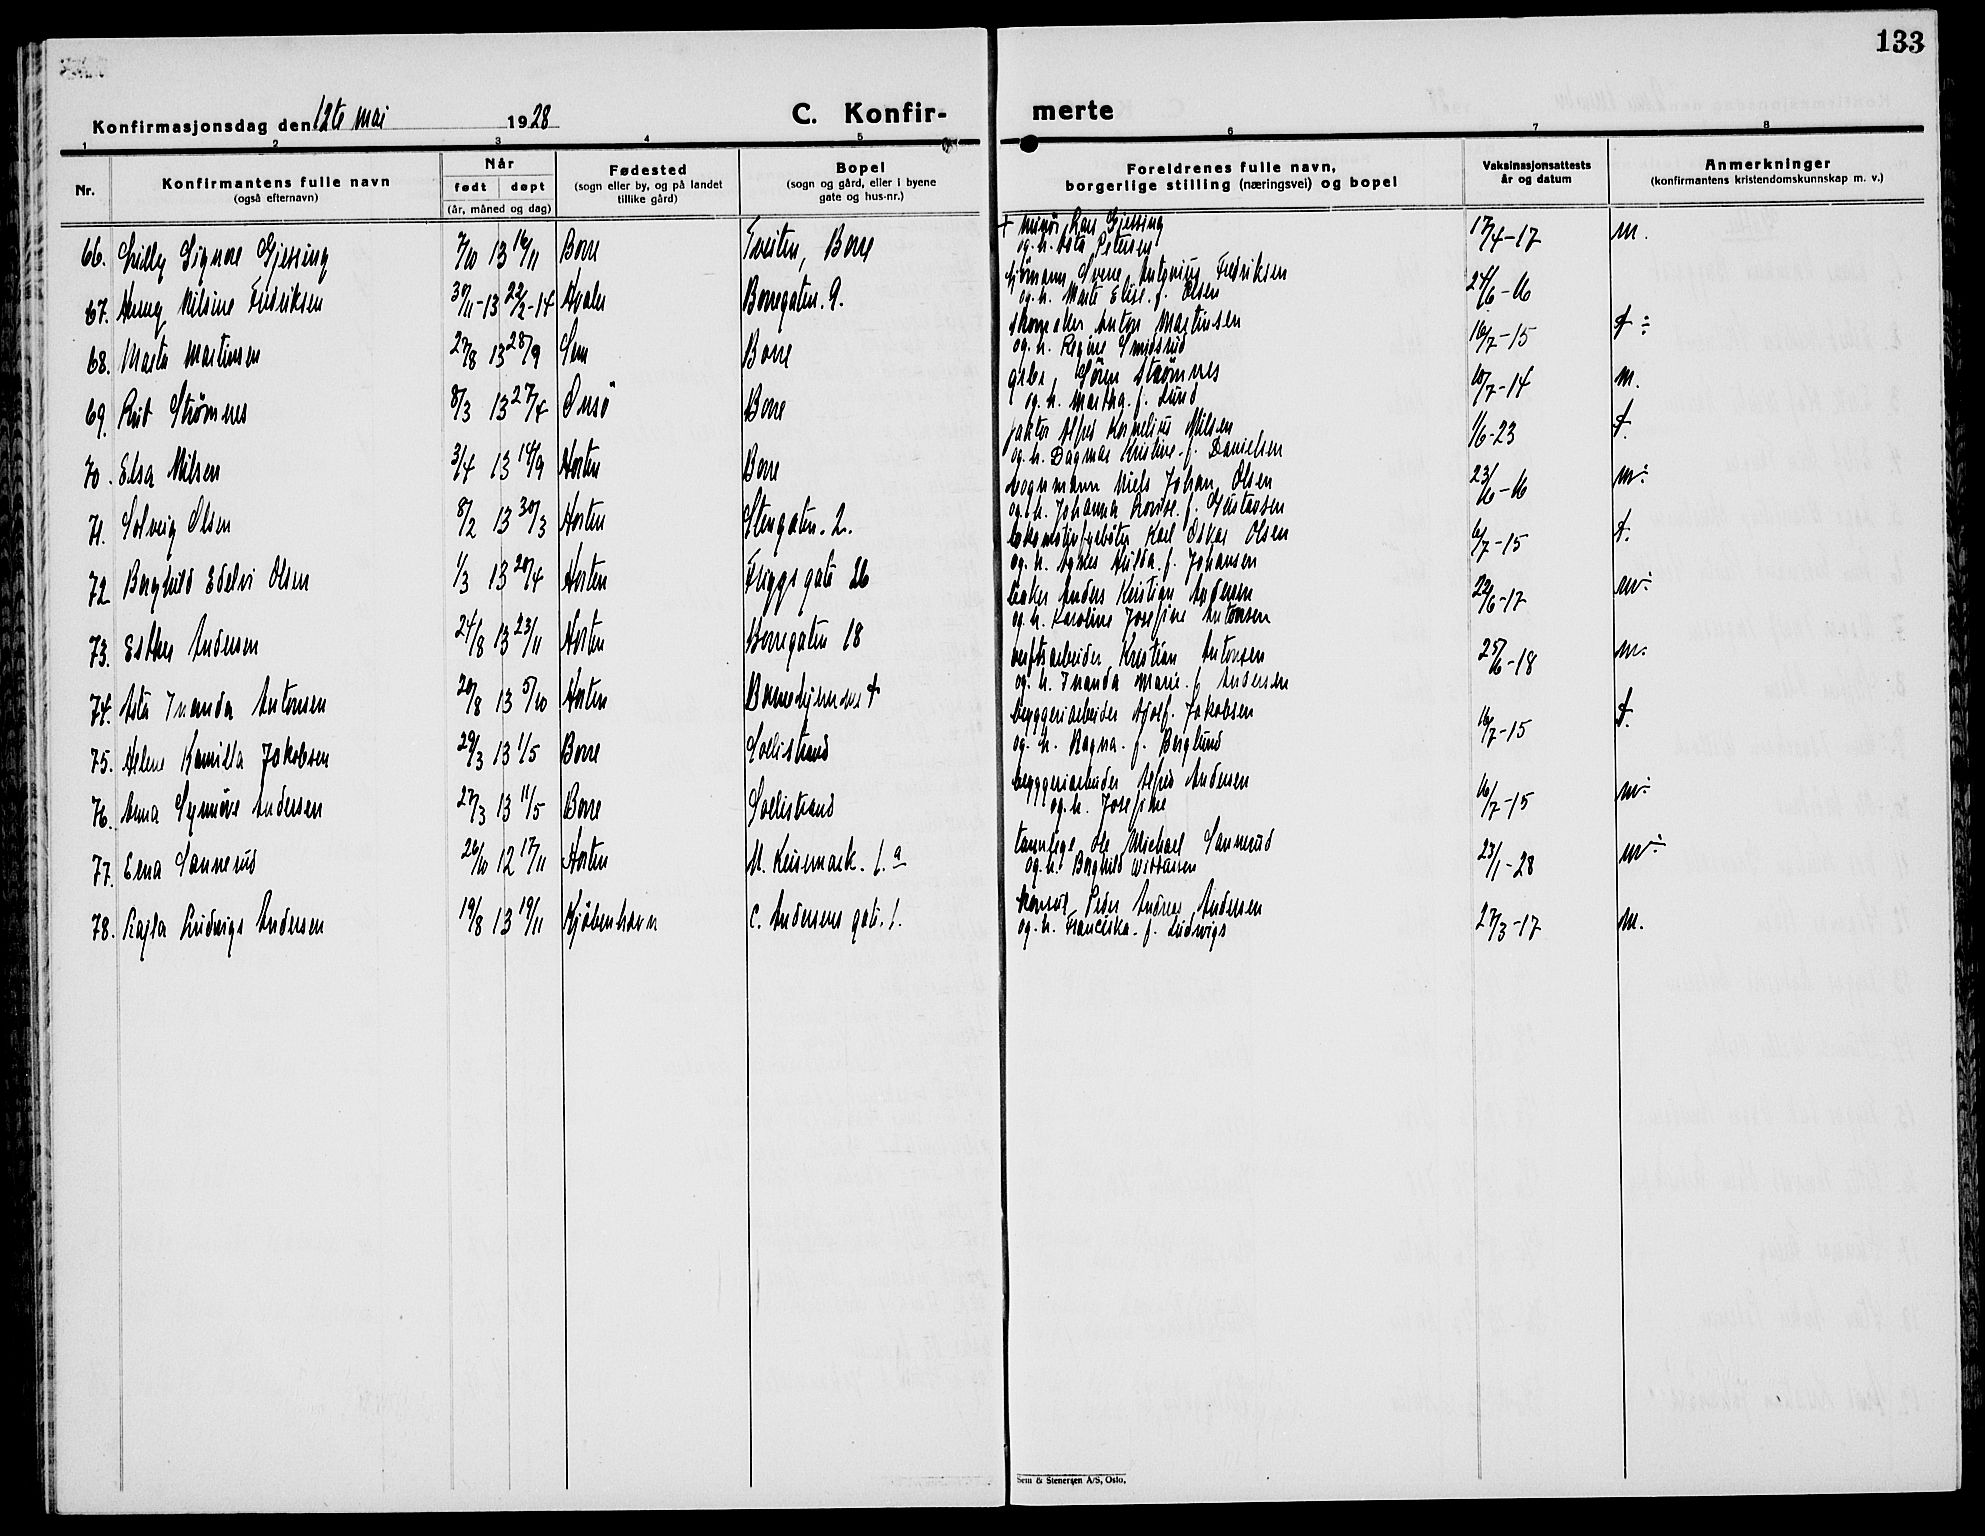 133
Konfirmasjonsdag den 12te mai 1928
C. Konfir-
merte
1 2 3 4 5 6 7 8
Nr.
Konfirmantens fulle navn
(også efternavn)
Når
født døpt
(år, måned og dag)
Fødested
(sogn eller by, og på landet
tillike gård)
Bopel
(sogn og gård, eller i byene
gate og hus-nr.)
Foreldrenes fulle navn,
borgerlige stilling (næringsvei) og bopel
Vaksinasjonsattests
år og datum
Anmerkninger
(konfirmantens kristendomskunnskap m. v.)
66. Lilly Signore Gjessing 7/10 13 16/11 Borre Tveiten, Borre
+ minør Lars Gjessing
og. h. Asta Petersen
17/4-17 m.
67. Henny Nilsine Fredriksen 30/11-13 22/2-14 Hvaler Borregaten. 9.
Svene Antonius Fredriksen
og. h. Marte Elise. f. Olsen
24/6-16
68. Marta Martinsen 27/8 13 28/9 Sem Borre
skomaker Anton Martinsen
og. h. Regine Smidsrud
16/7-15
69. Rut Strømnes 8/3 13 27/4 Onsö Borre
gbr. Sören Strömnes
og. h. Martha. f. Lund
10/7-14 m.
70. Elsa Nilsen 3/4 13 14/9 Horten Borre
faktor Alfred Kornelius Nilsen
og. h. Dagmar Kristine. f. Danielsen
1/6-23
71. Solveig Olsen 8/2 13 30/3 Horten Stengaten. 2.
vognmann Niels Johan Olsen
og. h. Johanna Lovise. f. Gustavsen
23/6-16
72 Borghild Edelvi Olsen 1/3 13 20/4 Horten Friggs gate 26
lokomotivfyrbøter Karl Oskar Olsen
og. h. Agnes Hulda. f. Johansen
6/7-15
73. Esther Andersen 24/8 13 23/11 Horten Borregaten 18
baker Anders Kristian Andersen
og. h. Karoline Josefine Antonsen
22/6-17
74. Asta Ivanda Antonsen 20/8 13 5/10 Horten
verftsarbeider Kristian Antonsen
og. h. Ivanda Marie. f. Andersen
25/6-18 m.
75. Helene Kamilla Jakobsen 29/3 13 1/5 Borre Sollistrand
bryggeriarbeider Adolf. Jakobsen
og. h. Ragna. f. Berglund
16/7-15
76. Anna Synnöve Andersen 27/3 13 11/5 Borre Sollistrand
bryggeriarbeider Alfred Andersen
og. h. Josefine
16/7-15
77. Erna Sannerud 26/10 12 17/11 Horten N. Keisemark. 1. a
tannlege Ole Michael Sannerud
og. h. Borghild
23/1-28
78. Kajla Ludvigs Andersen 19/8 13 19/11 Kjöbenhavn C. Andersens gate. 1.
konsul Peder Andreas Andersen
og. h. Franciska. f. Ludwigs
27/3-17 m.
Sem & Stenersen A/S, Oslo.